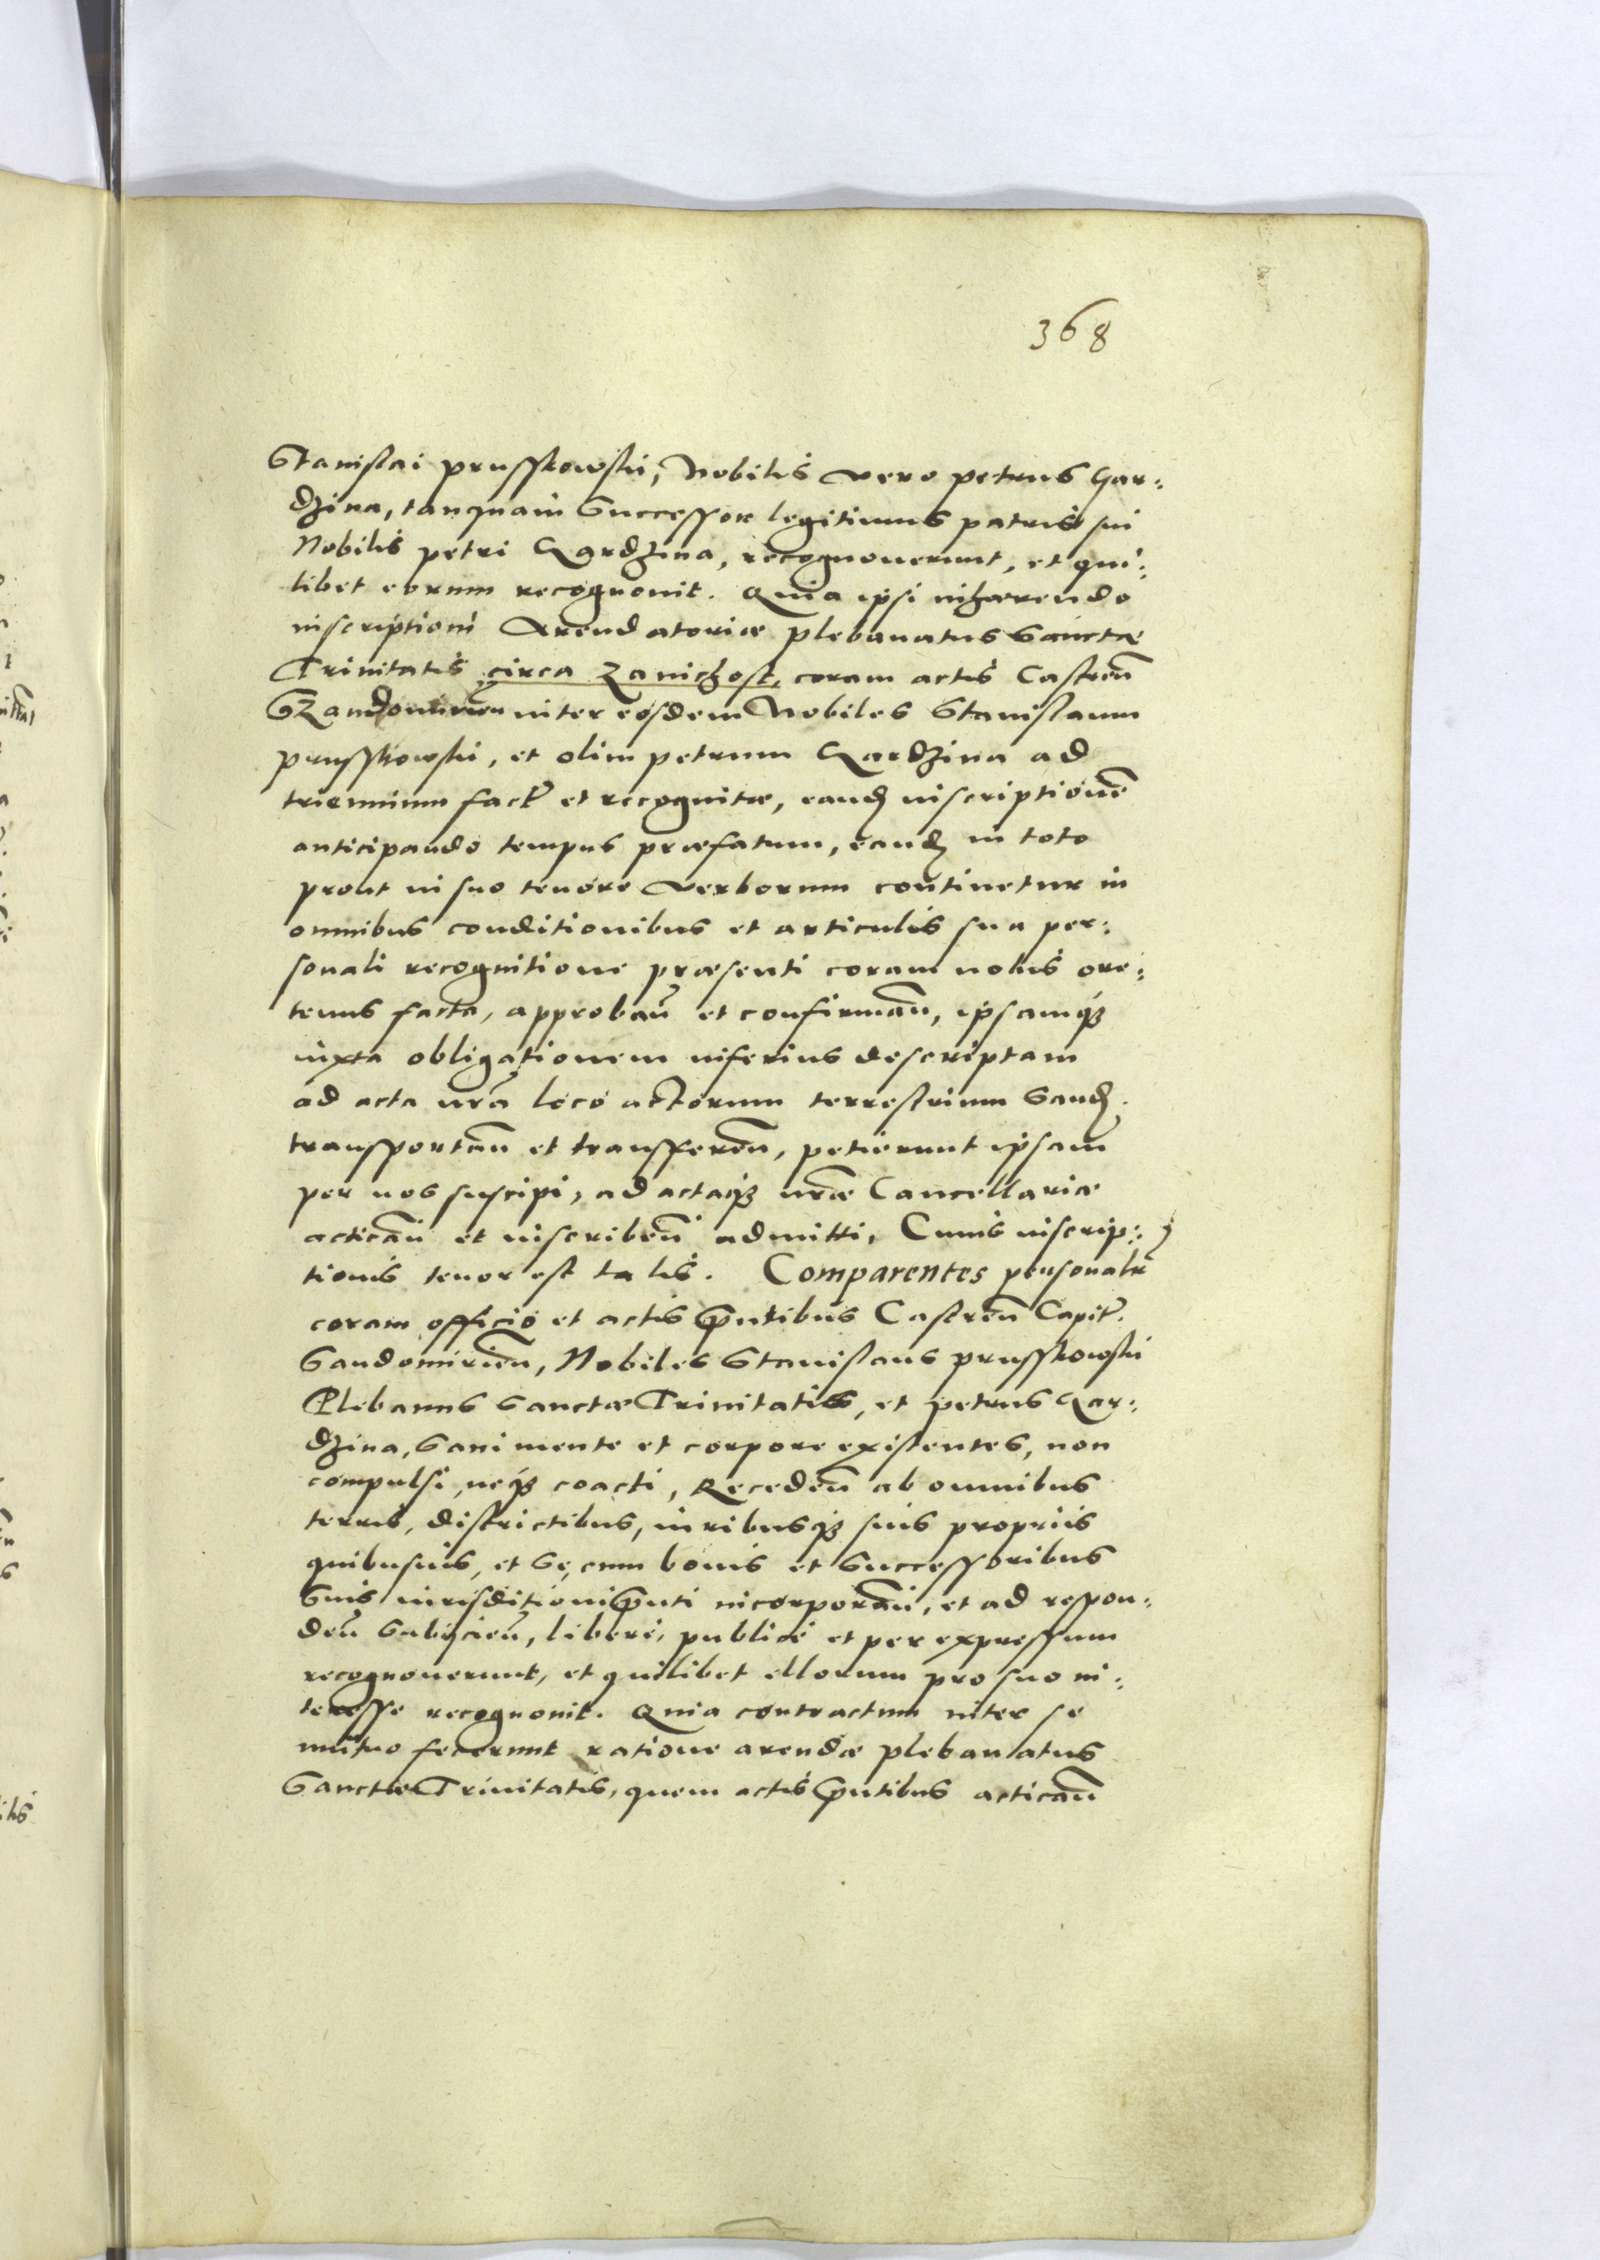 368
Stanislai prusskowski, Nobilis vero petrus Gar:
dzina, tanquam Successor legitimus patris sui
Nobilis petri Gardzina, recognouerunt, et qui:
libet eorum recognouit. Quia ipsi inhærendo
inscriptioni Arendatoriæ plebanatus Sanctæ
Trinitatis circa Zanichost, coram actis Castreñ
Szandomirieñ inter eosdem Nobiles Stanislaum
prusskowski, et olim petrum Gardzina ad
triennium fact et recognitæ, eand inscriptionē
anticipando tempus præfatum, eand in toto
prout in suo tenore verborum continetur in
omnibus conditionibus et articulis sua per:
sonali recognitione præsenti coram nobis ore:
tenus facta, approbañ et confirmañ, ipsamq3
iuxta obligationem inferius descriptam
ad acta nrã loco actorum terrestrium Sand.
transportañ et transfereñ, petierunt ipsam
per nos suscipi, ad actaq3 nræ Cancellariæ
acticañ et inscribeñ admitti, Cuius inscrip:
tionis tenor est talis. Comparentes personalr
coram officio et actis pñtibus Castreñ Capitᵗ.
Sandomirieñ, Nobiles Stanislaus prusskowski
Plebanus Sanctæ Trinitatis, et petrus Gar:
dzina, Sani mente et corpore existentes, non
compulsi, neq3 coacti, Recedeñ ab omnibus
terris, districtibus, iuribusq3 suis propriis
quibusuis, et Se, cum bonis et Successoribus
Suis iurisditioni pñti incorporañ, et ad respon:
deñ Subiicieñ, libere, publice et per expressum
recognouerunt, et quilibet illorum pro suo in:
teresse recognouit. Quia contractum inter se
mutuo fecerunt ratione arendæ plebanatus
Sanctæ Trinitatis, quem actis pñtibus acticañ